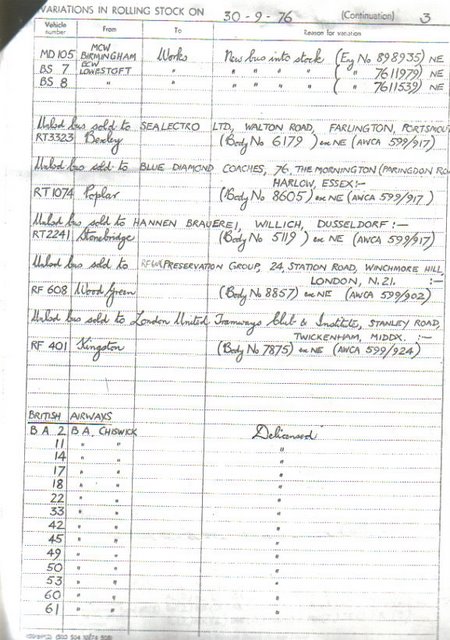 VARIATIONS IN ROLLING STOCK ON 30-9-76 (Continuation) 3
Vehicle number From To Reason for variation
MD 105 MCW BIRMINGHAM Works New bus into stock (Eng No 898935) NE
BS 7 ECW LOWESTOFT " " " " " ( " 7611979) NE
BS 8 " " " " " " " ( " 7611539) NE
Unlsd bus sold to SEALECTRO LTD, WALTON ROAD, FARLINGTON, PORTSMOUTH
RT3323 Bexley (Body No 6179) ex NE (AWCA 599/917)
Unlsd bus sold to BLUE DIAMOND COACHES, 76, THE MORNINGTON (PARINGDON RO
HARLOW, ESSEX:-
RT1074 Poplar (Body No 8605) ex NE (AWCA 599/917)
Unlsd bus sold to HANNEN BRAUEREI, WILLICH, DUSSELDORF :-
RT2241 Stonebridge (Body No 5119) ex NE (AWCA 599/917)
Unlsd bus sold to PRESERVATION GROUP, 24, STATION ROAD, WINCHMORE HILL,
LONDON, N.21. :-
RF 608 Wood Green (Body No 8857) ex NE (AWCA 599/902)
Unlsd bus sold to London United Tramways Club & Institute, STANLEY ROAD,
TWICKENHAM, MIDDX. :-
RF 401 Kingston (Body No 7875) ex NE (AWCA 599/924)
BRITISH AIRWAYS
BA 2 BA, CHISWICK Delicensed
11 " " "
14 " " "
17 " " "
18 " " "
22 " " "
33 " " "
42 " " "
45 " " "
49 " " "
50 " " "
53 " " "
60 " " "
61 " " "